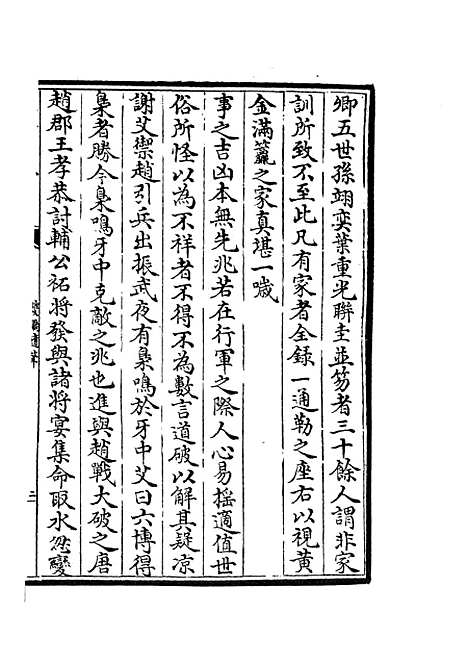 卿五世孫翊奕葉重光聯圭並笏者三十餘人謂非家
訓所致不至此凡有家者全録一通勒之座右以視黄
金滿籯之家真堪一噦
事之吉凶本無先兆若在行軍之際人心易揺適值世
俗所怪以為不祥者不得不為數言道破以解其疑凉
謝艾禦趙引兵出振武夜有梟鳴於牙中艾曰六博得
梟者勝今梟鳴牙中克敵之兆也進與趙戰大破之唐
趙郡王孝恭討輔公祏將發與諸將宴集命取水忽變
三